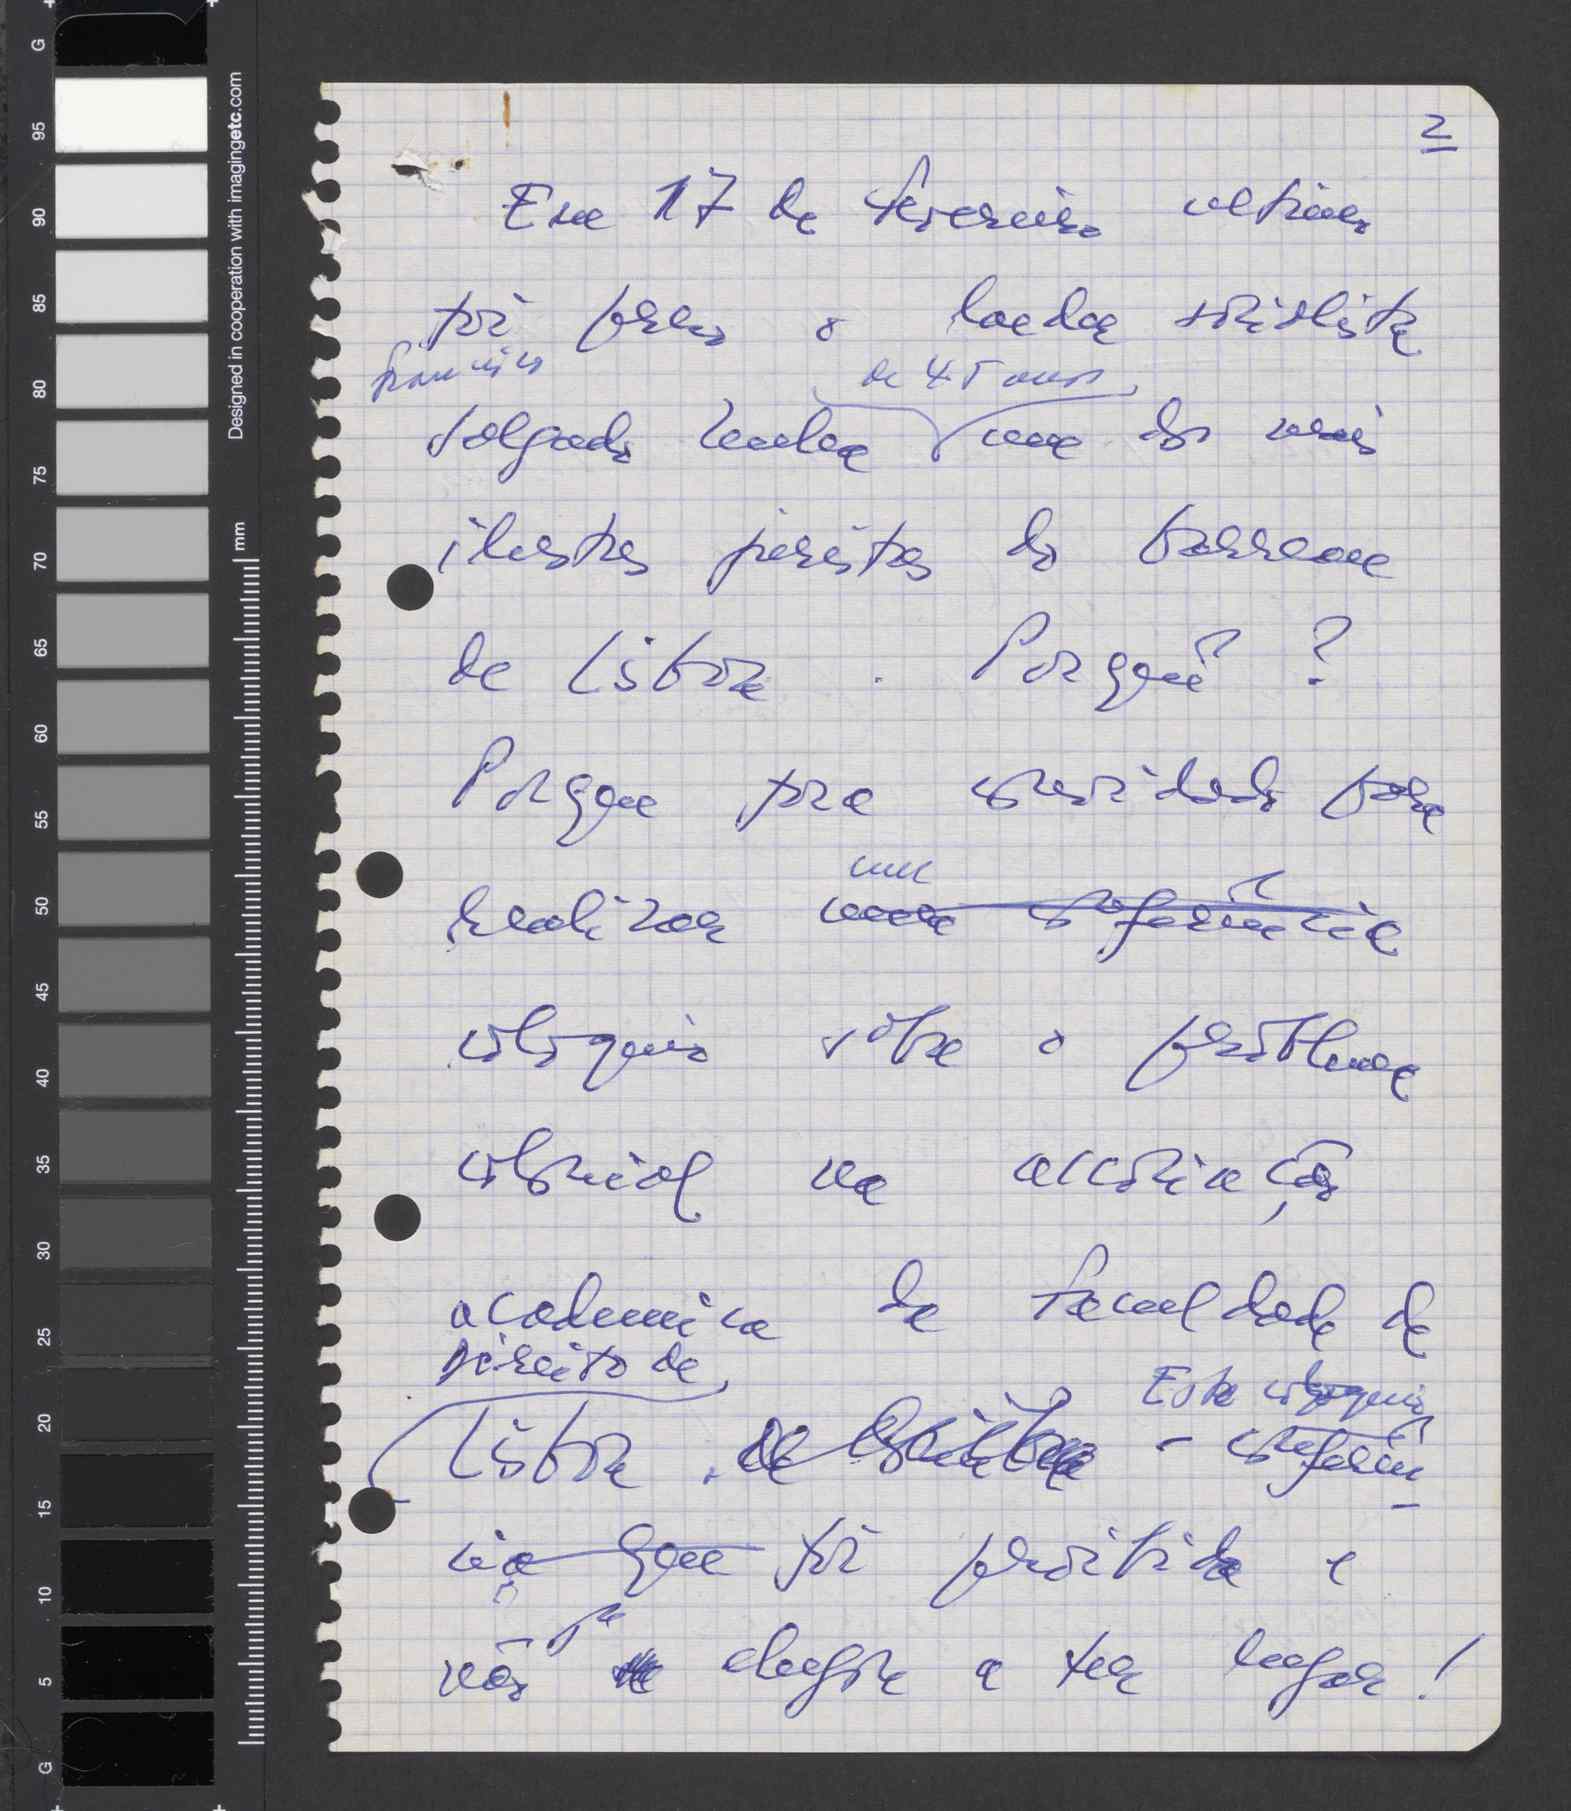 2
Em 17 de fevereiro ultimo
foi preso o leader socialista
francisco de 45 anos
Salgado Zenha um dos mais
ilustres juristas do barreau
de Lisboa. Porquê?
Porque fora convidado para
um
realizar uma conferência
coloquio sôbre o problema
colonial na associação
academica da Faculdade de
Direito de
Este coloquio
Lisboa. - conferên-
cia que foi proibida e
não se chegou a ter lugar!
G
95
90
85
80
75
70
65
60
55
50
45
40
35
30
25
20
15
10
5
G
mm
Designed in cooperation with imagingetc.com